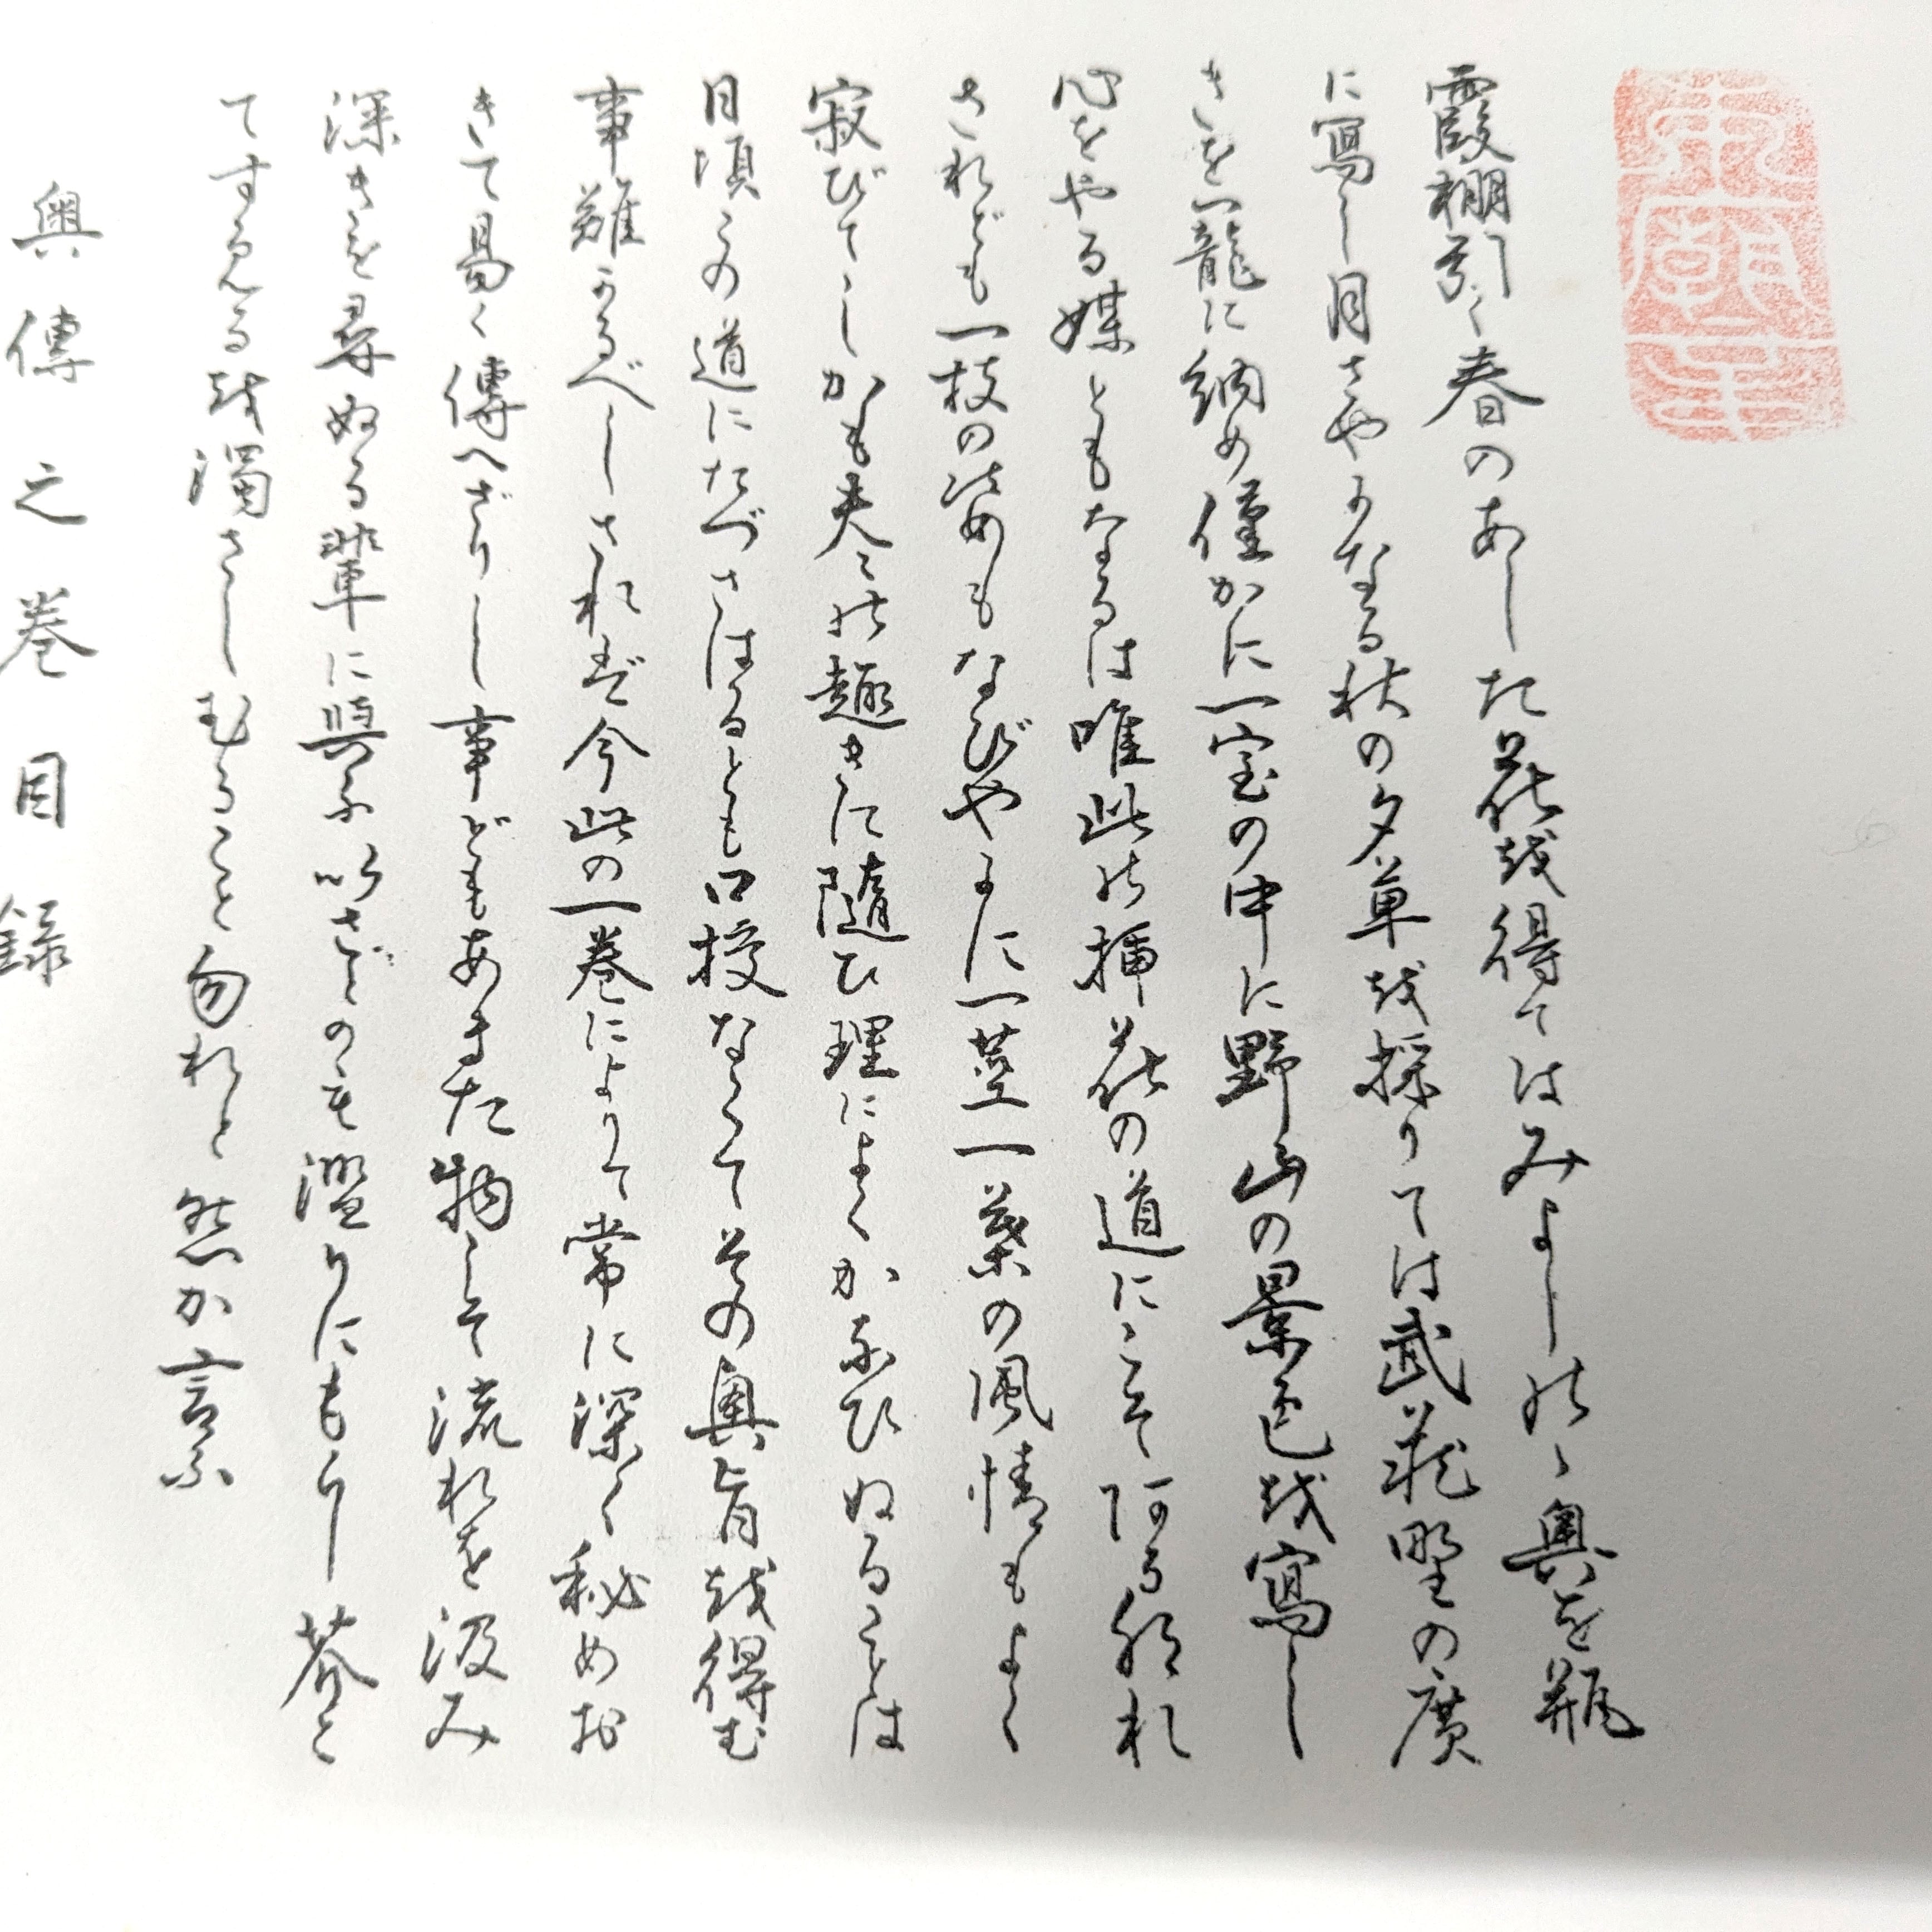 霞棚引く春のあした花越得てはみよしのゝ奥を瓶
に寫し月さやかなる秋の夕草越採りては武蔵野の廣
きを一籠に納め僅かに一室の中に野山の景色越寫し
心をやる媒ともなるは唯此の挿花の道にこそ阿る那れ
されども一枝の姿もなびやかに一莖一葉の風情もよく
寂びてしかも夫々の趣きに隨ひ理によくかなひぬることは
日頃この道にたづさはるとも口授なくてその奥旨越得む
事難かるべしされば今此の一巻によりて常に深く秘めお
きて易く傳へざりし事どもあまた物して流れを汲み
深きを尋ぬる輩に與ふ以さゞのも濫りにもらし芥と
てすゑる越濁さしむること勿れと然か言ふ
奥傳之巻目録